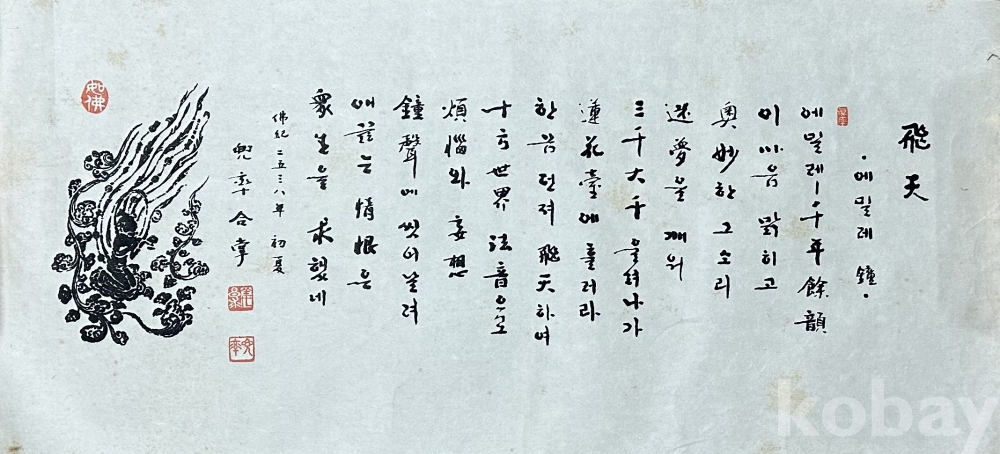 飛天
·에밀레 鐘·
에밀레 千年餘韻
이 마음 맑히고
奧妙한 그 소리
迷夢을 깨워
三千大千 울려나가
蓮花臺에 흘러라
한 몸 던져 飛天하여
十方世界 法音으로
煩惱와 妄想
鐘聲에 씻어 날려
애끓는 情恨은
衆生을 求했네
佛紀 二五三八年 初夏
兜率 合掌
如佛
兜率
kobay